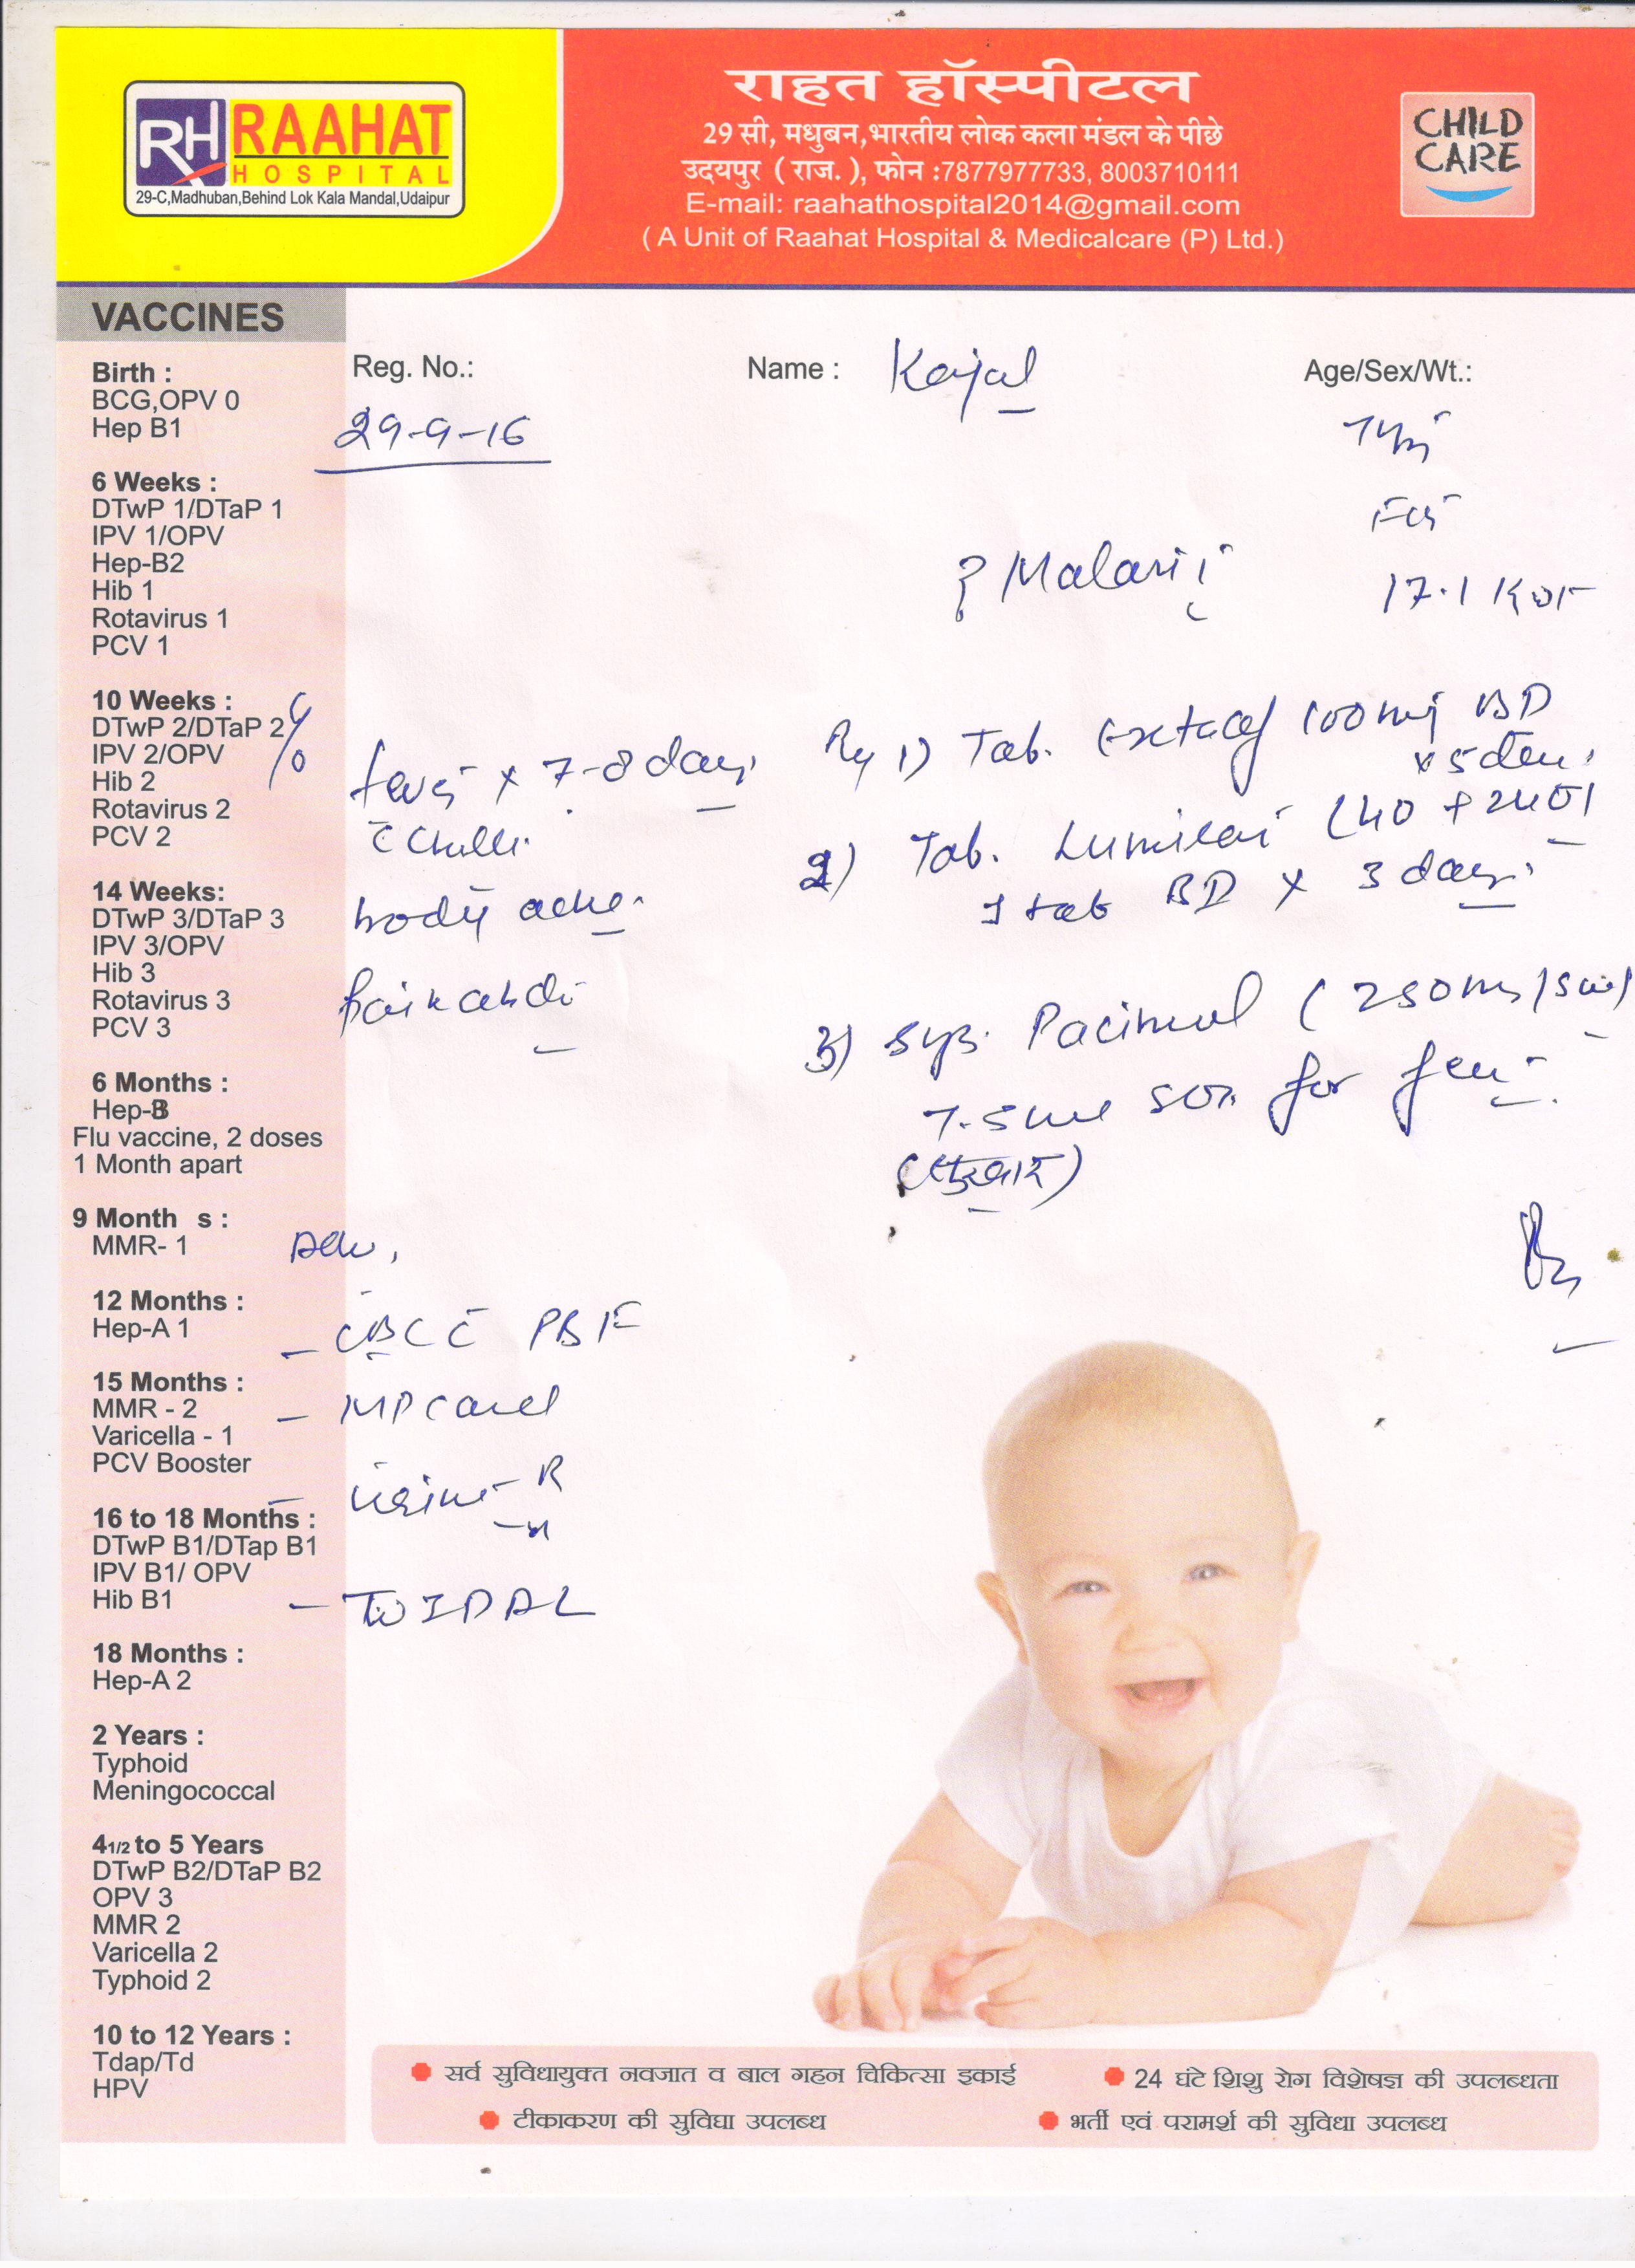 RH RAAHAT
HOSPITAL
29-C,Madhuban,Behind Lok Kala Mandal,Udaipur
राहत हॉस्पीटल
29 सी, मधुबन,भारतीय लोक कला मंडल के पीछे
उदयपुर ( राज. ), फोन :7877977733, 8003710111
E-mail: raahathospital2014@gmail.com
( A Unit of Raahat Hospital & Medicalcare (P) Ltd.)
CHILD
CARE
VACCINES
Birth :
BCG,OPV 0
Hep B1
6 Weeks :
DTwP 1/DTaP 1
IPV 1/OPV
Hep-B2
Hib 1
Rotavirus 1
PCV 1
10 Weeks :
DTwP 2/DTaP 2
IPV 2/OPV
Hib 2
Rotavirus 2
PCV 2
14 Weeks:
DTwP 3/DTaP 3
IPV 3/OPV
Hib 3
Rotavirus 3
PCV 3
6 Months :
Hep-B3
Flu vaccine, 2 doses
1 Month apart
9 Month s :
MMR- 1
12 Months :
Hep-A 1
15 Months :
MMR - 2
Varicella - 1
PCV Booster
16 to 18 Months :
DTwP B1/DTap B1
IPV B1/ OPV
Hib B1
18 Months :
Hep-A 2
2 Years :
Typhoid
Meningococcal
41/2 to 5 Years
DTwP B2/DTaP B2
OPV 3
MMR 2
Varicella 2
Typhoid 2
10 to 12 Years :
Tdap/Td
HPV
Reg. No.: Name : Kajal Age/Sex/Wt.:
29-9-16
? Malaria
17.1
c/o
fever x 7-8 days
c̄ chills.
body ache.
Adv,
- CBC c̄ PBF
- MP card
- Urine - R
- WIDAL
1) Tab. 100 mg BD
x 5 days
2) Tab. (40 + 240)
1 tab BD x 3 days
3) Syp. Pacimol (250mg/5ml)
7.5ml SOS for fever
सर्व सुविधायुक्त नवजात व बाल गहन चिकित्सा इकाई
24 घंटे शिशु रोग विशेषज्ञ की उपलब्धता
टीकाकरण की सुविधा उपलब्ध
भर्ती एवं परामर्श की सुविधा उपलब्ध